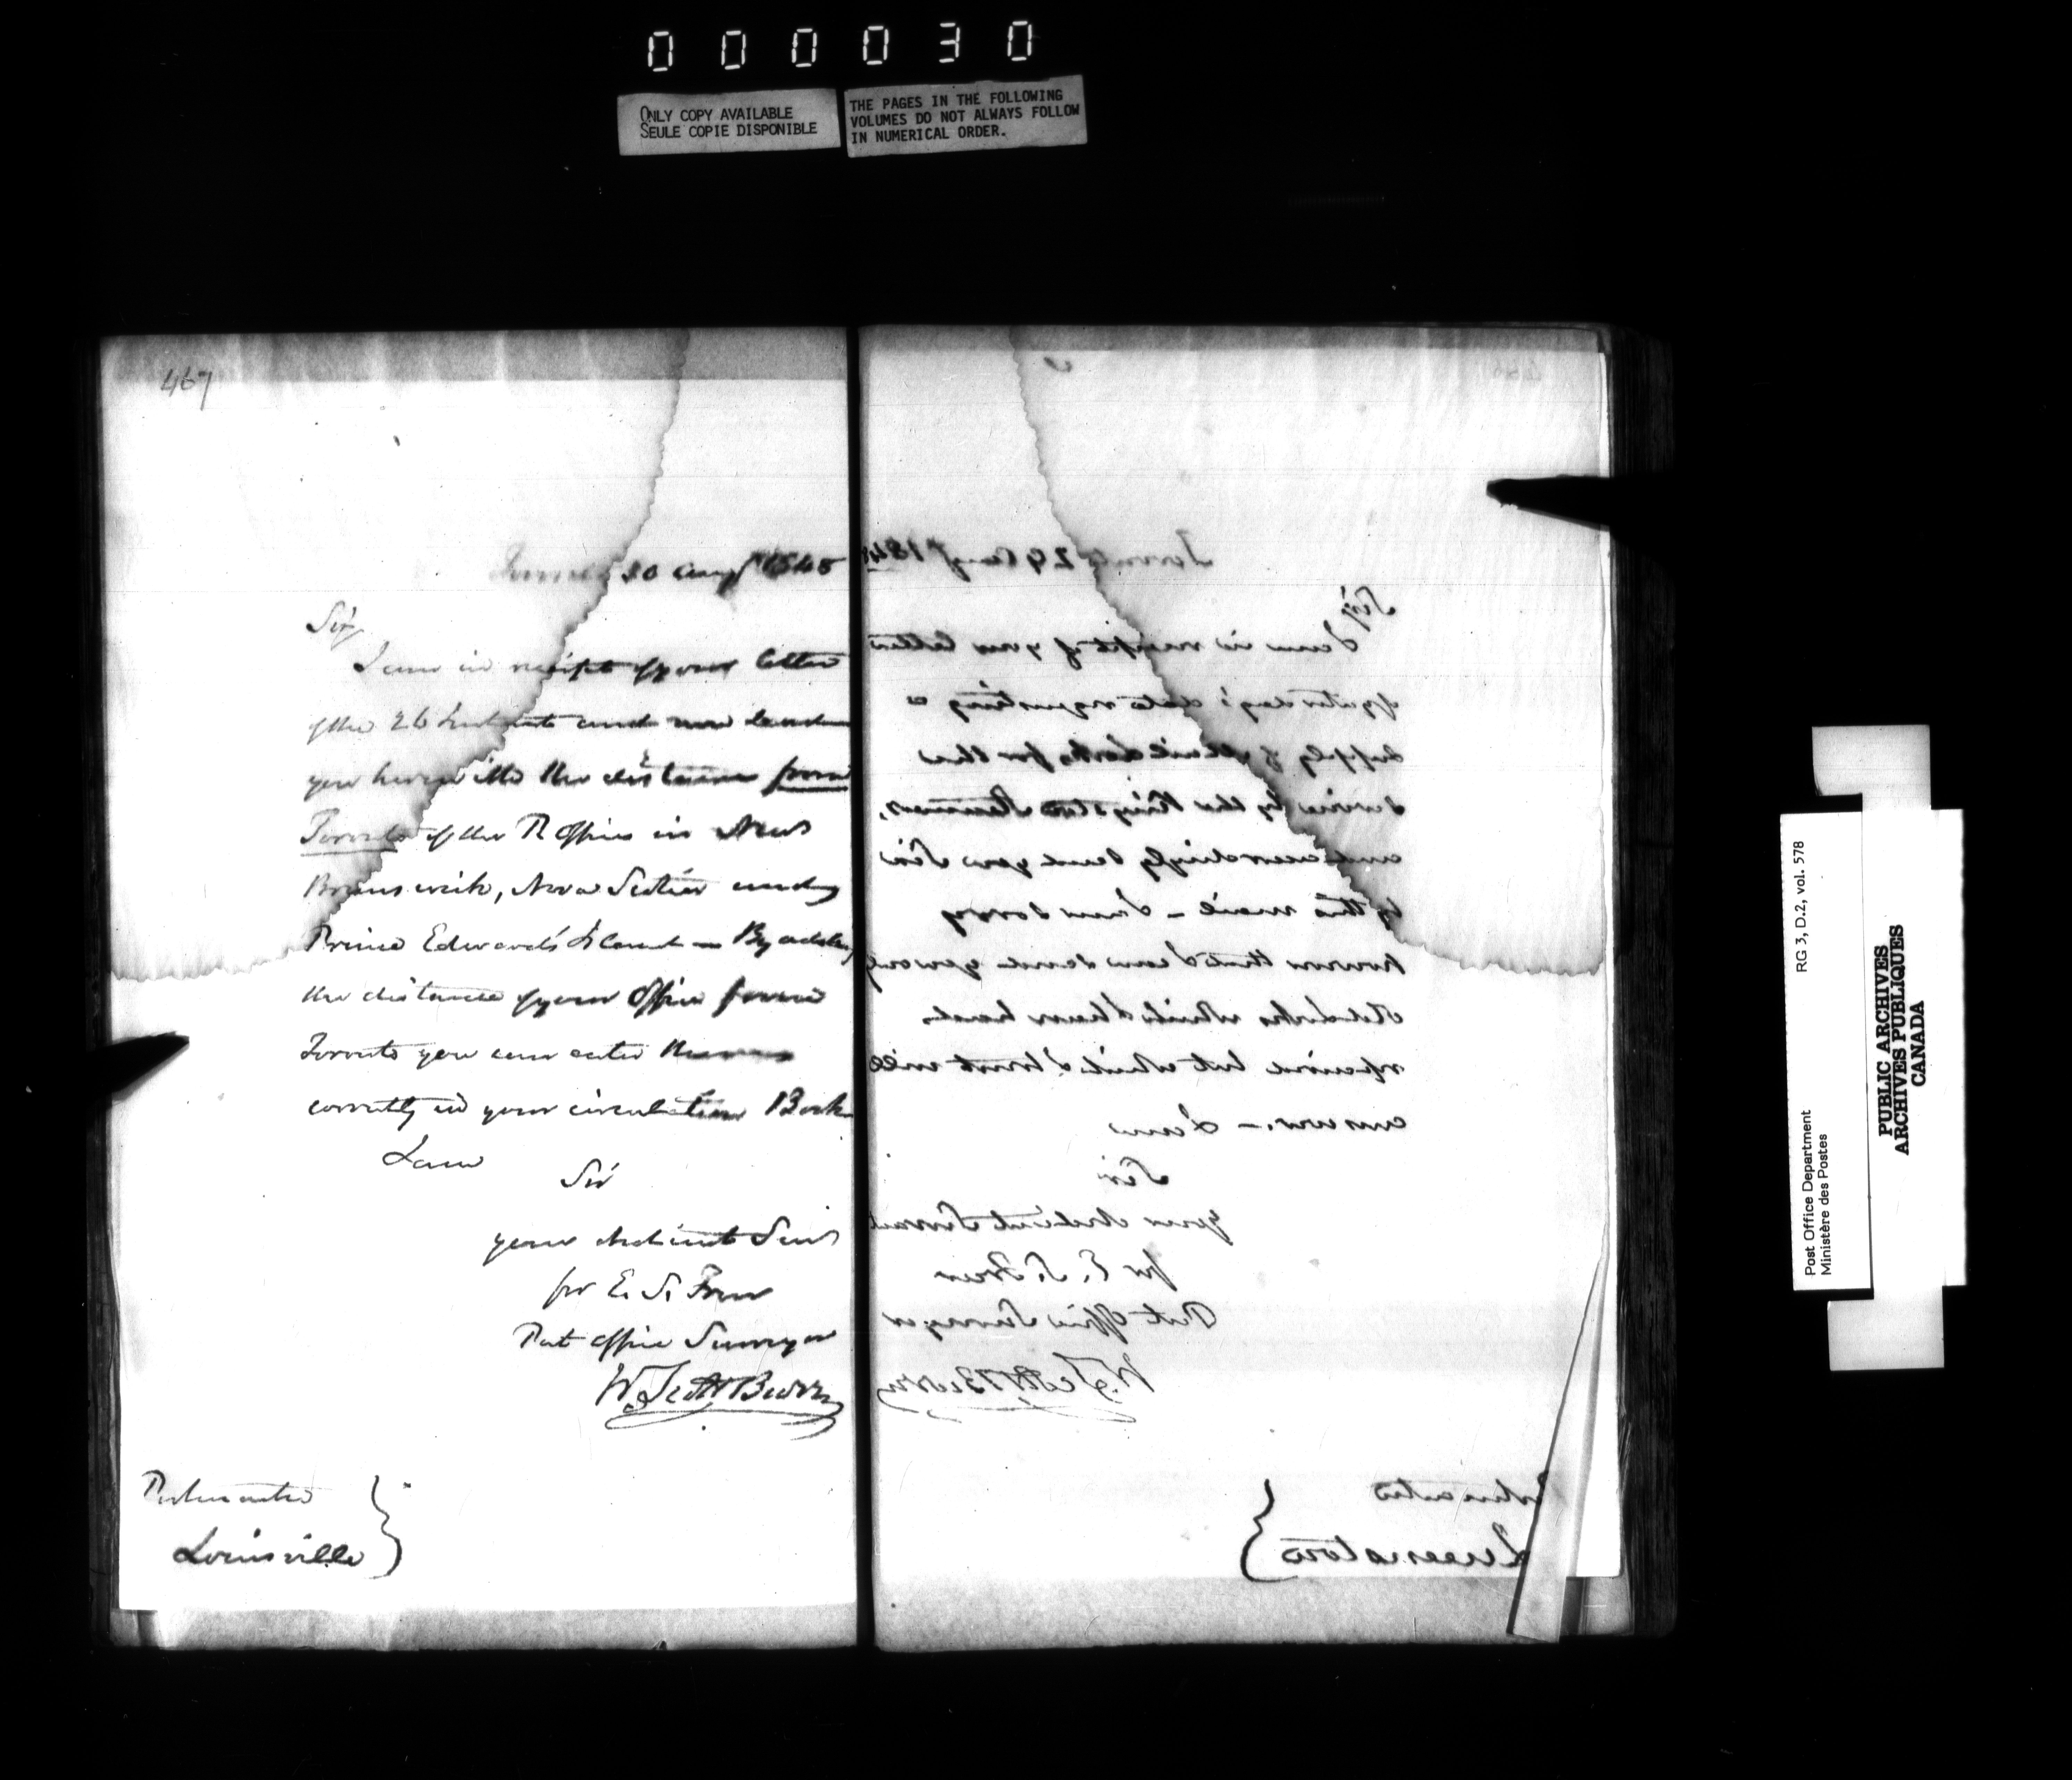 000030
ONLY COPY AVAILABLE
SEULE COPIE DISPONIBLE
THE PAGES IN THE FOLLOWING
VOLUMES DO NOT ALWAYS FOLLOW
IN NUMERICAL ORDER.
467
Toronto 30 Augt 1845
Sir,
I am in receipt of your letter
of the 26 Instant and now hand
you herewith the distances from
Toronto of the P. Offices in New
Brunswick, Nova Scotia and
Prince Edward's Island — By adding
the distance of your Office from
Toronto you can enter them
correctly in your circulation Book
I am
Sir
your obedient Servt
for E. S. Freer
Post Office Surveyor
W. Scott Burn
Postmaster
Louisville
Toronto 29 Augt 184
Sir,
I am in receipt of your letter
of yesterday's date requesting a
supply of Mail Locks for the
service by the Kingston Steamers,
and accordingly send you Six
by this mail — I am sorry
however that I can send you only
Old Locks which I have had
repaired but which I trust will
answer. — I am
Sir
Your obedient Servant
for E. S. Freer
Post Office Surveyor
W. Scott Burn
Postmaster
Queenston
RG 3, D.2, vol. 578
Post Office Department
Ministère des Postes
PUBLIC ARCHIVES
ARCHIVES PUBLIQUES
CANADA